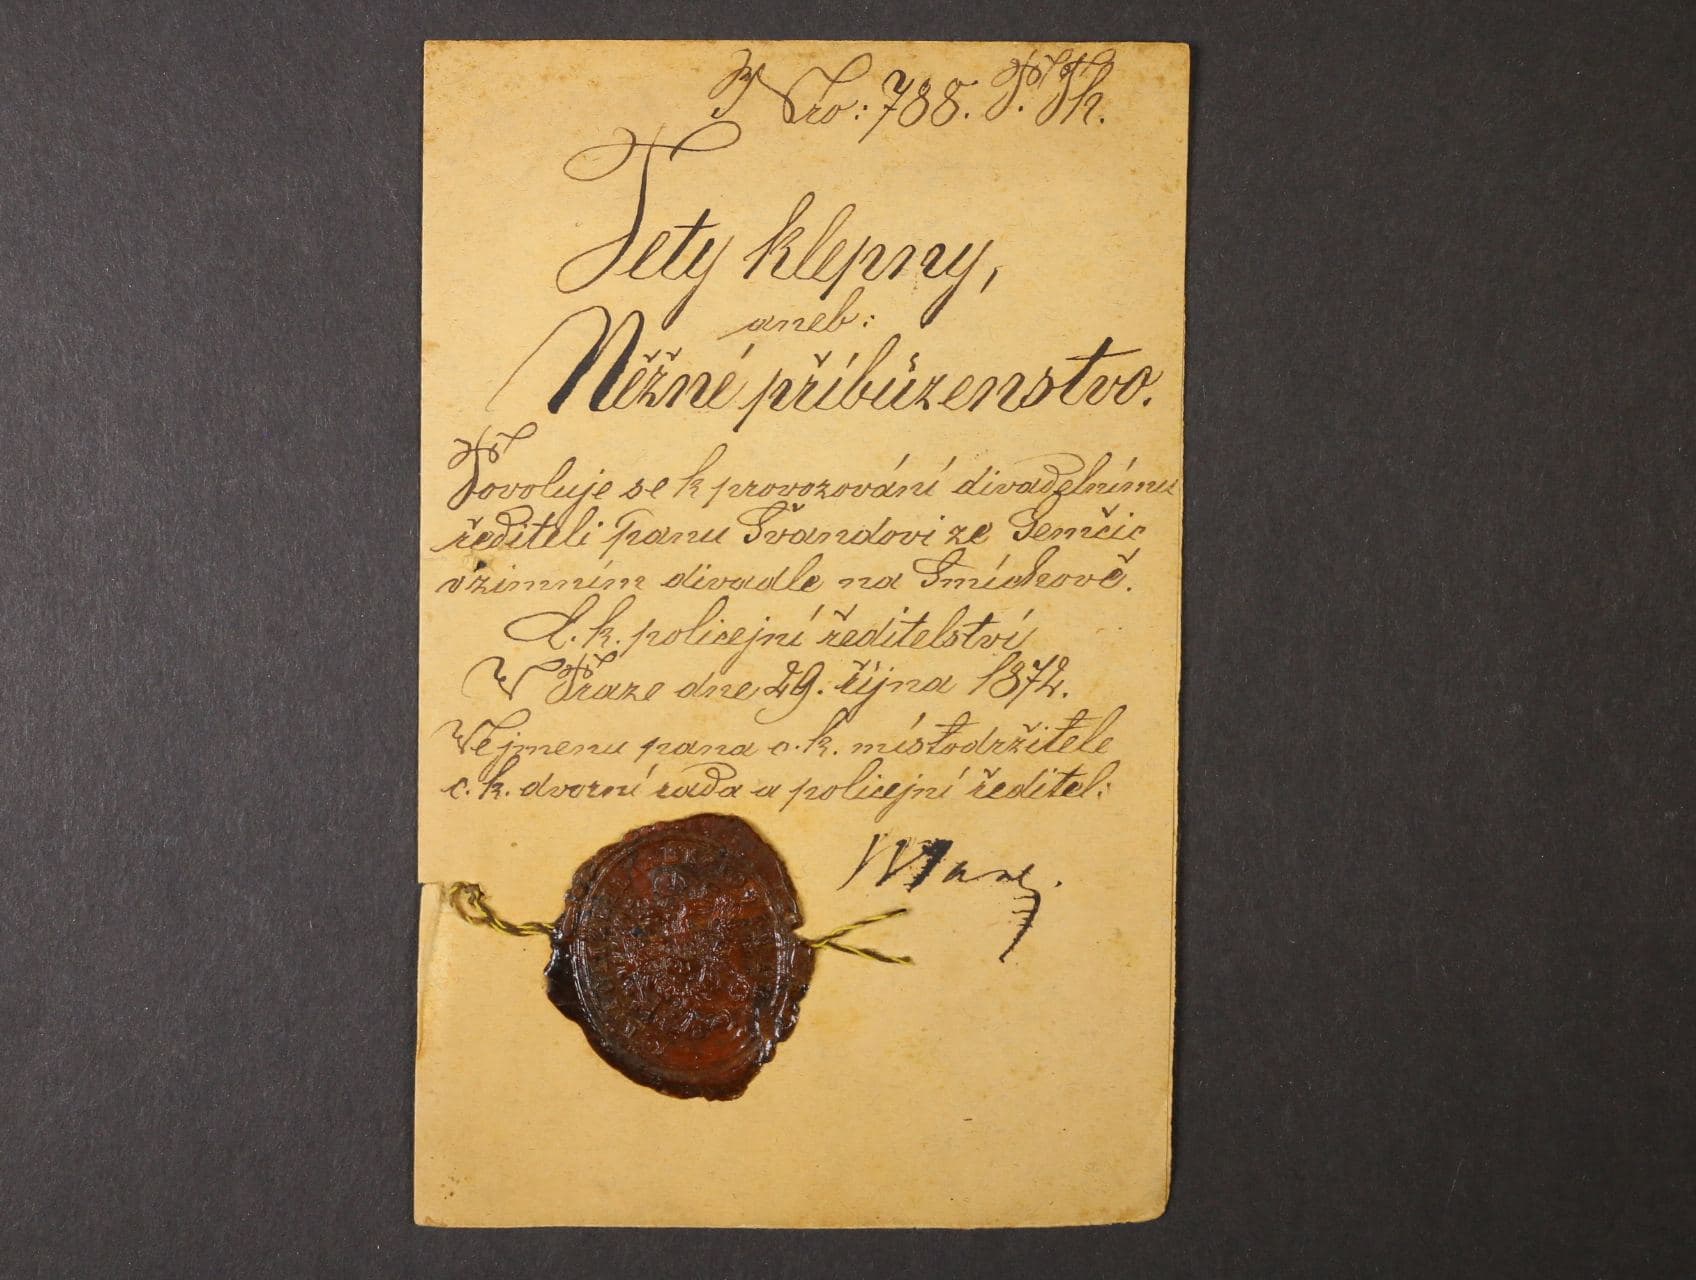 Nro: 788. P. Th.
Tety klepny,
aneb:
Něžné příbůzenstvo.
Povoluje se k provozování divadelnímu
řediteli panu Švandovi ze Semčic
v zimním divadle na Smíchově.
C. k. policejní ředitelství
V Praze dne 29. října 1872.
Ve jmenu pana c. k. místodržitele
c. k. dvorní rada a policejní ředitel: